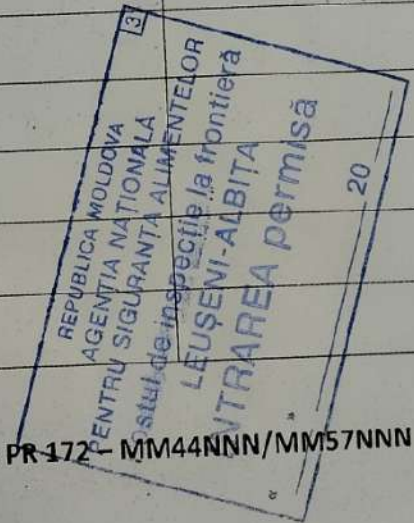 3
REPUBLICA MOLDOVA
AGENȚIA NAȚIONALĂ
PENTRU SIGURANȚA ALIMENTELOR
ostul de inspecție la frontieră
LEUȘENI-ALBIȚA
NTRAREA permisă
" " 20
PR 172 – MM44NNN/MM57NNN